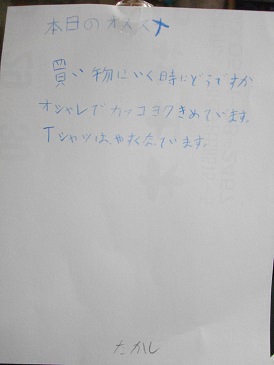 本日のオススメ
買い物にいく時にどうですか
オシャレでカッコヨクきめています。
Tシャツはやすくなています。
たかし